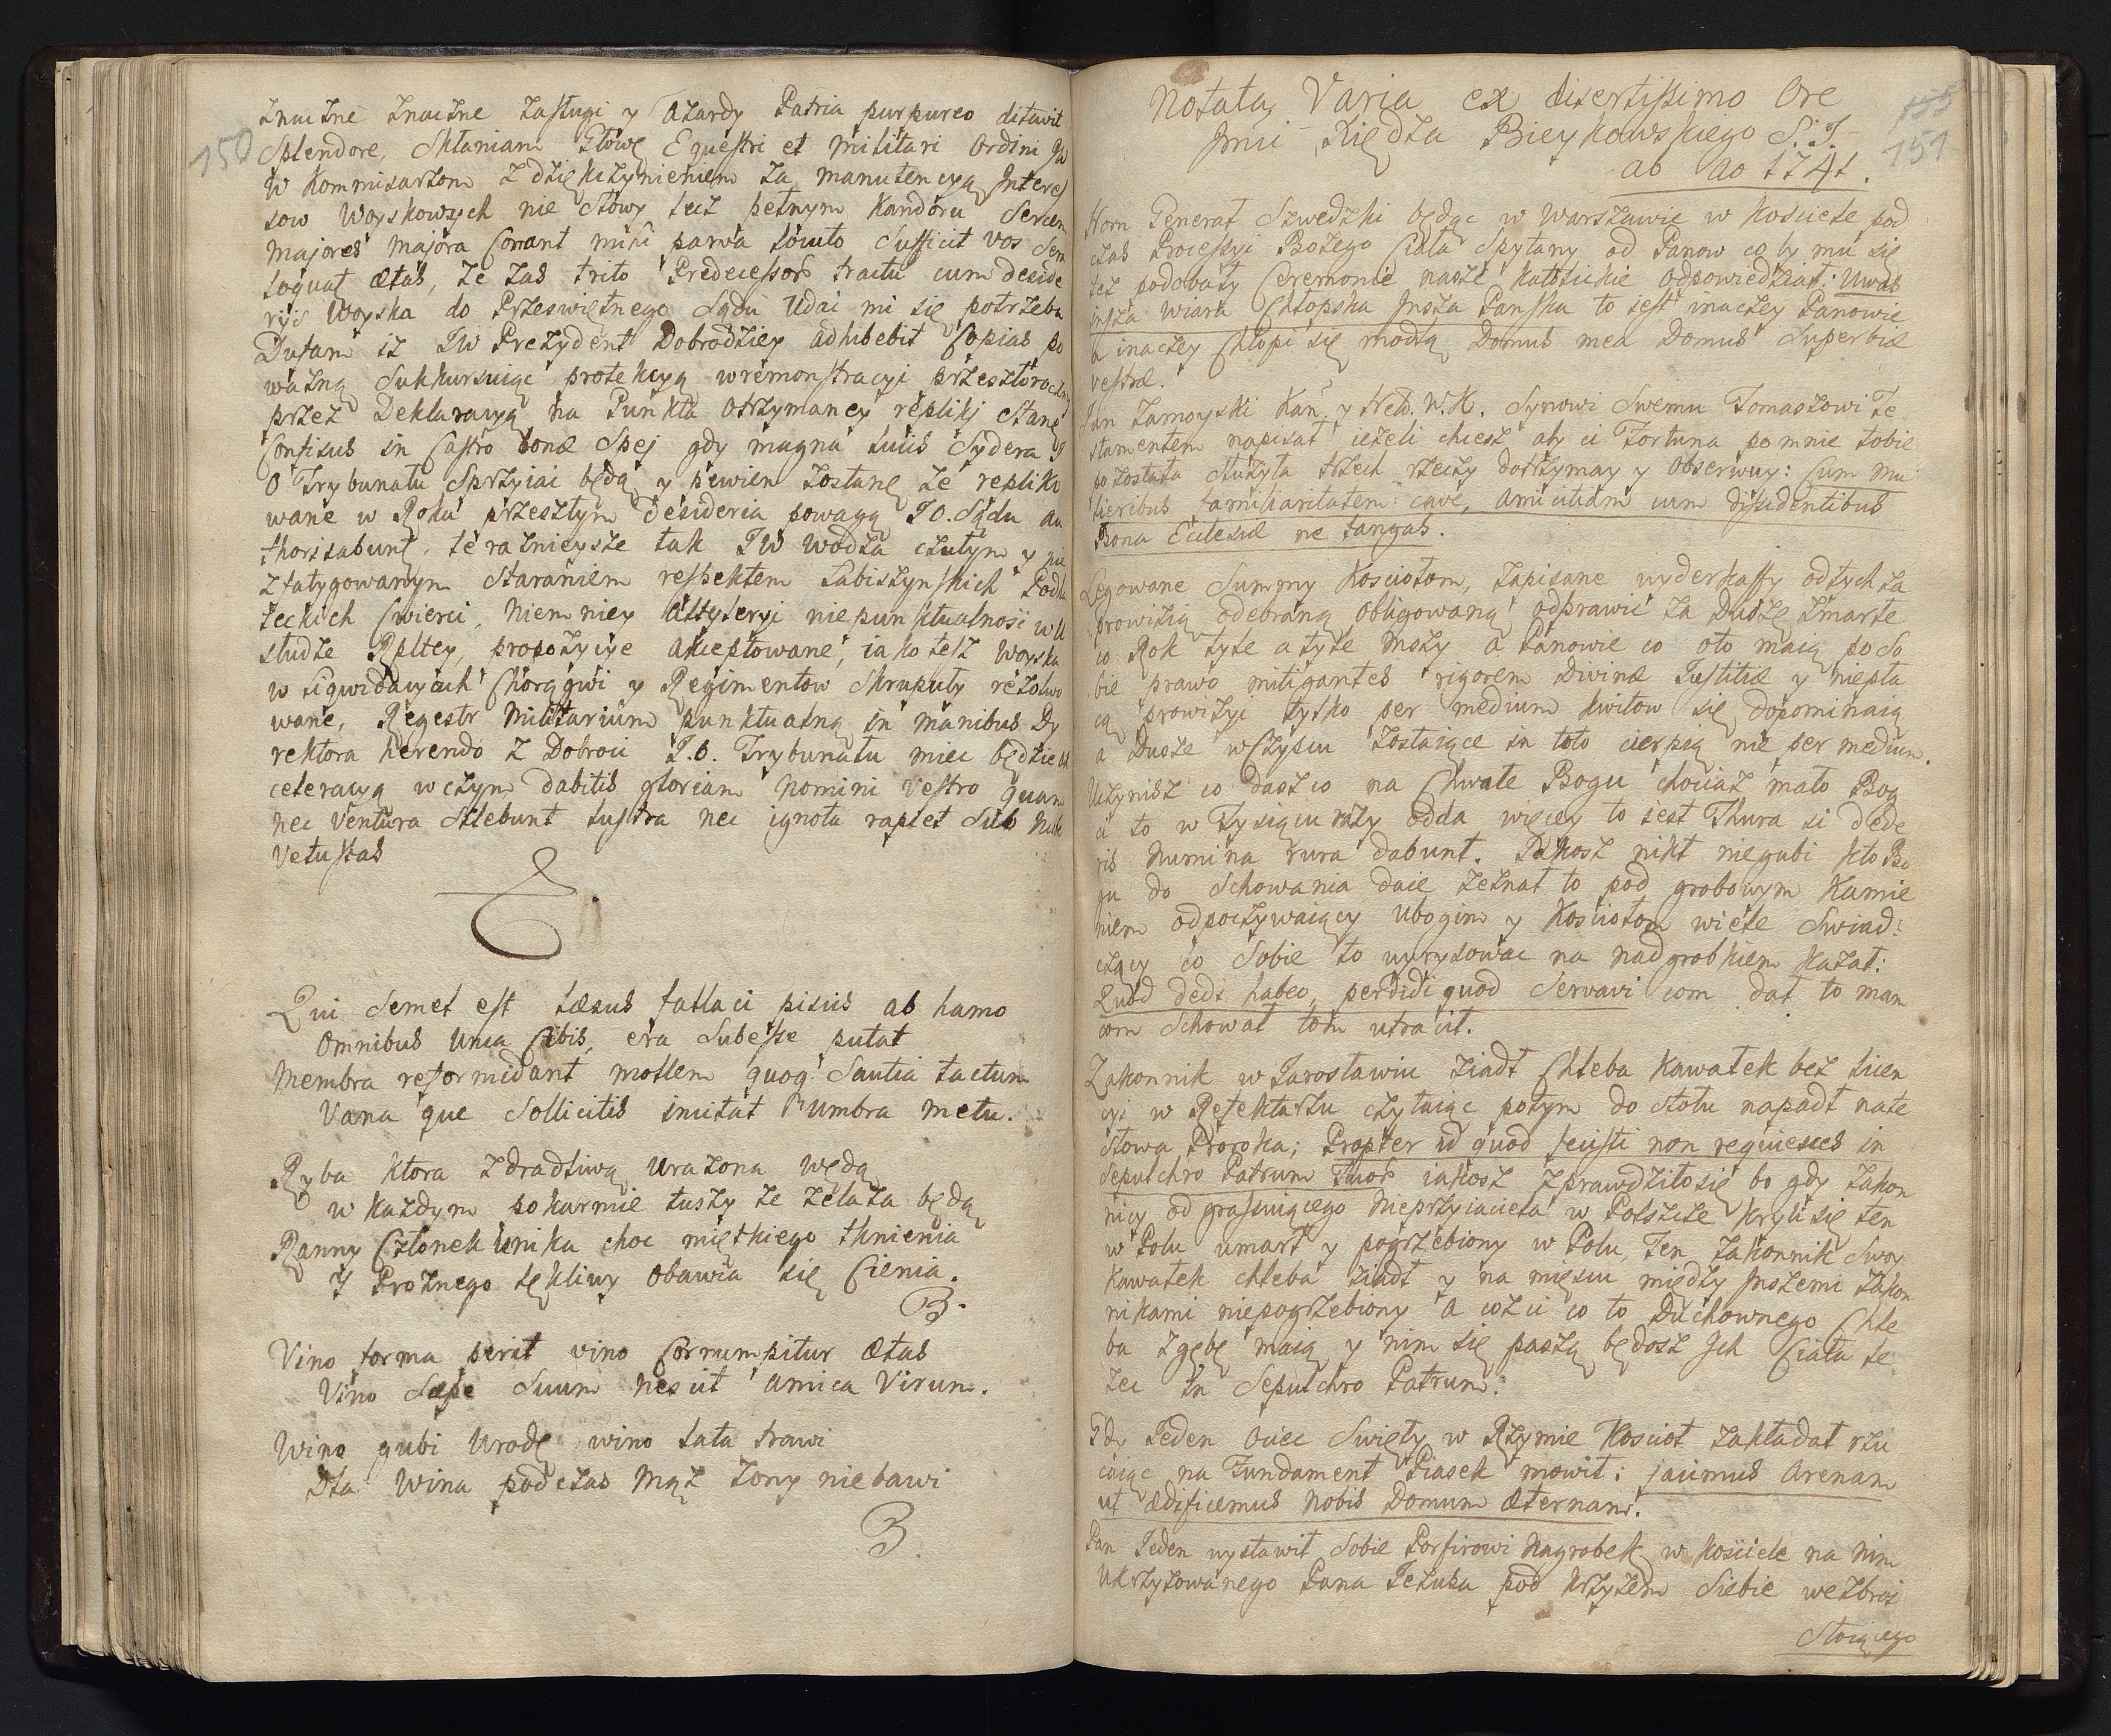 150
znaczne znaczne zasługi y Azardy Patria purpureo ditavit
Splendore, Skłaniam Głowę Equestri et Militari Ordini JW
W Kommisarzom z dziękczynieniem za manutencyą Interes
sow Woyskowych nie słowy lecz pełnym Kandoru Sercem
majores majora sonant mihi parva locuto Sufficit vos Sera
loquat ætas, że zas trito Predecessor tractu cum deside
rijs Woyska do Przeswiętnego Sądu Udac mi się potrzeba
Dufam iz JW Prezydent Dobrodziey adhibebit Copias po
wazną Sukkursuiąc protekcyą w remonstracyi przeszłoroczney
przez Deklaracyą na Punkta otrzymaney repliki Stanę
Confisus in Castro bonæ Spej gdy magna lucis Sydera
O Trybunału Sprzyiac będą y pewien zostanę że repliko
wane w Roku przeszłym desideria powagą JO. Sądu au
thorisabunt, teraznieysze tak JW Wodza czułym y nie
zfatygowanym Staraniem respektem Łabiszynskich Podłu
zeckich Cwierci, niemniey Artyleryi niepunktualnosc w U
studze Rpltey, propozycye akceptowane, iako tesz Woyska
w Liqwidacyach Chorągwi y Regimentow Skrupuły rezolwo
wane, Regestr Militarium punktualną in manibus Dy
rektora herendo z Dobroci J.O. Trybunału miec będzie
celeracyą w czym dabitis gloriam Nomini Vestro quam
nec Ventura Silebunt Lustra nec ignota rapiet Sub Nube
Vetustas
Qui Semel est læsus fallaci piscis ab hamo
Omnibus Unca Cibis, æra Subesse putat
Membra reformidant mollem quoq; Saucia tactum
Vana que Sollicitis incitat Umbra metu.
Ryba ktora zdradliwą urazona wędą
w kazdym pokarmie tuszy ze zelaza będą
Ranny Członek Unika choc miętkiego tknienia
Y Proznego lękliwy obawia się Cienia.
B.
Vino forma perit vino Corrumpitur Ætas
Vino Sæpe Suum nescit amica Virum.
Wino gubi Urodę wino lata trawi
Dla Wina podczas Mąz Zony niebawi
B
Notata Varia ex disertissimo Ore
Jmci Xiędza Bieykowskiego S.J.
ab Ao 1741.
155
151
Horn Generał Szwedzki będąc w Warszawie w Kosciele pod
czas Processyi Bozego Ciała Spytany od Panow co by mu się
tez podobały Ceremonie nasze Katolickie odpowiedział: Uwas
insza Wiara Chłopska Insza Panska to iest inaczey Panowie
a inaczey Chłopi się modlą Domus mea Domus Superbiæ
vestræ.
Jan Zamoyski Kan. y Het. W.K. Synowi Swemu Tomaszowi Te
stamentem napisał iezeli chcesz aby ci Fortuna po mnie tobie
pozostała słuzyła trzech rzeczy dotrzymay y obserwuy: Cum Mu
lieribus familiaritatem cave, amicitiam cum dissidentibus
Bona Ecclesiæ ne tangas.
Legowane Summy Kosciołom, zapisane wyderkaffy odtych za
prowizią odebraną obligowaną odprawic za Dusze zmarłe
co Rok tyle a tyle Mszy a Panowie co oto maią po So
bie prawo mitigantes rigorem Divinæ Iustitiæ y niepła
cą prowizyi tylko per medium kwitow się dopominaią
a Dusze w Czyscu zostaiące in toto cierpią nie per medium.
Uczynisz co dasz co na Chwałe Bogu chociaz mało Bog
ci to w Tysiącu razy odda więcey to iest Thura si dede
ris Numina rura dabunt. Jakosz nikt niegubi kto Bo
gu do Schowania daie zeznał to pod grobowym Kamie
niem odpoczywaiący Ubogim y Kosciołom wiele Swiad:
czący co Sobie to wyrysowac na Nadgrobkiem Kazał:
Quod dedi habeo, perdidi quod Servavi com dał to mam
com Schował tom utracił.
Zakonnik w Jarosławiu ziadł Chleba Kawałek bez licen
cyi w Refektarzu czytaiąc potym do stołu napadł na te
słowa Proroka; Propter id quod fecisti non requiesces in
Sepulchro Patrum Tuor iakosz Zprawdziłosię bo gdy Zakon
nicy od grassuiącego Nieprzyiaciela w Polszcze kryli się ten
w Polu umarł y pogrzebiony w Polu, Ten Zakonnik Swoy
Kawałek chleba ziadł y na mięscu między Inszemi Zakon
nikami niepogrzebiony a coz ci co to Duchownego Chle
ba Zgębę maią y nim się paszą będosz Ich Ciała le
zec in Sepulchro Patrum.
Gdy Jeden Ociec Swięty w Rzymie Kosciol zakładał rzu
caiąc na Fundament Piasek mowił: jacimus Arenam
ut ædificemus Nobis Domum Æternam.
Pan Jeden wystawił Sobie Porfirowi Nagrobek w Kosciele na nim
Ukrzyzowanego Pana Jezusa pod Krzyzem Siebie we Zbroi
Stoiącego